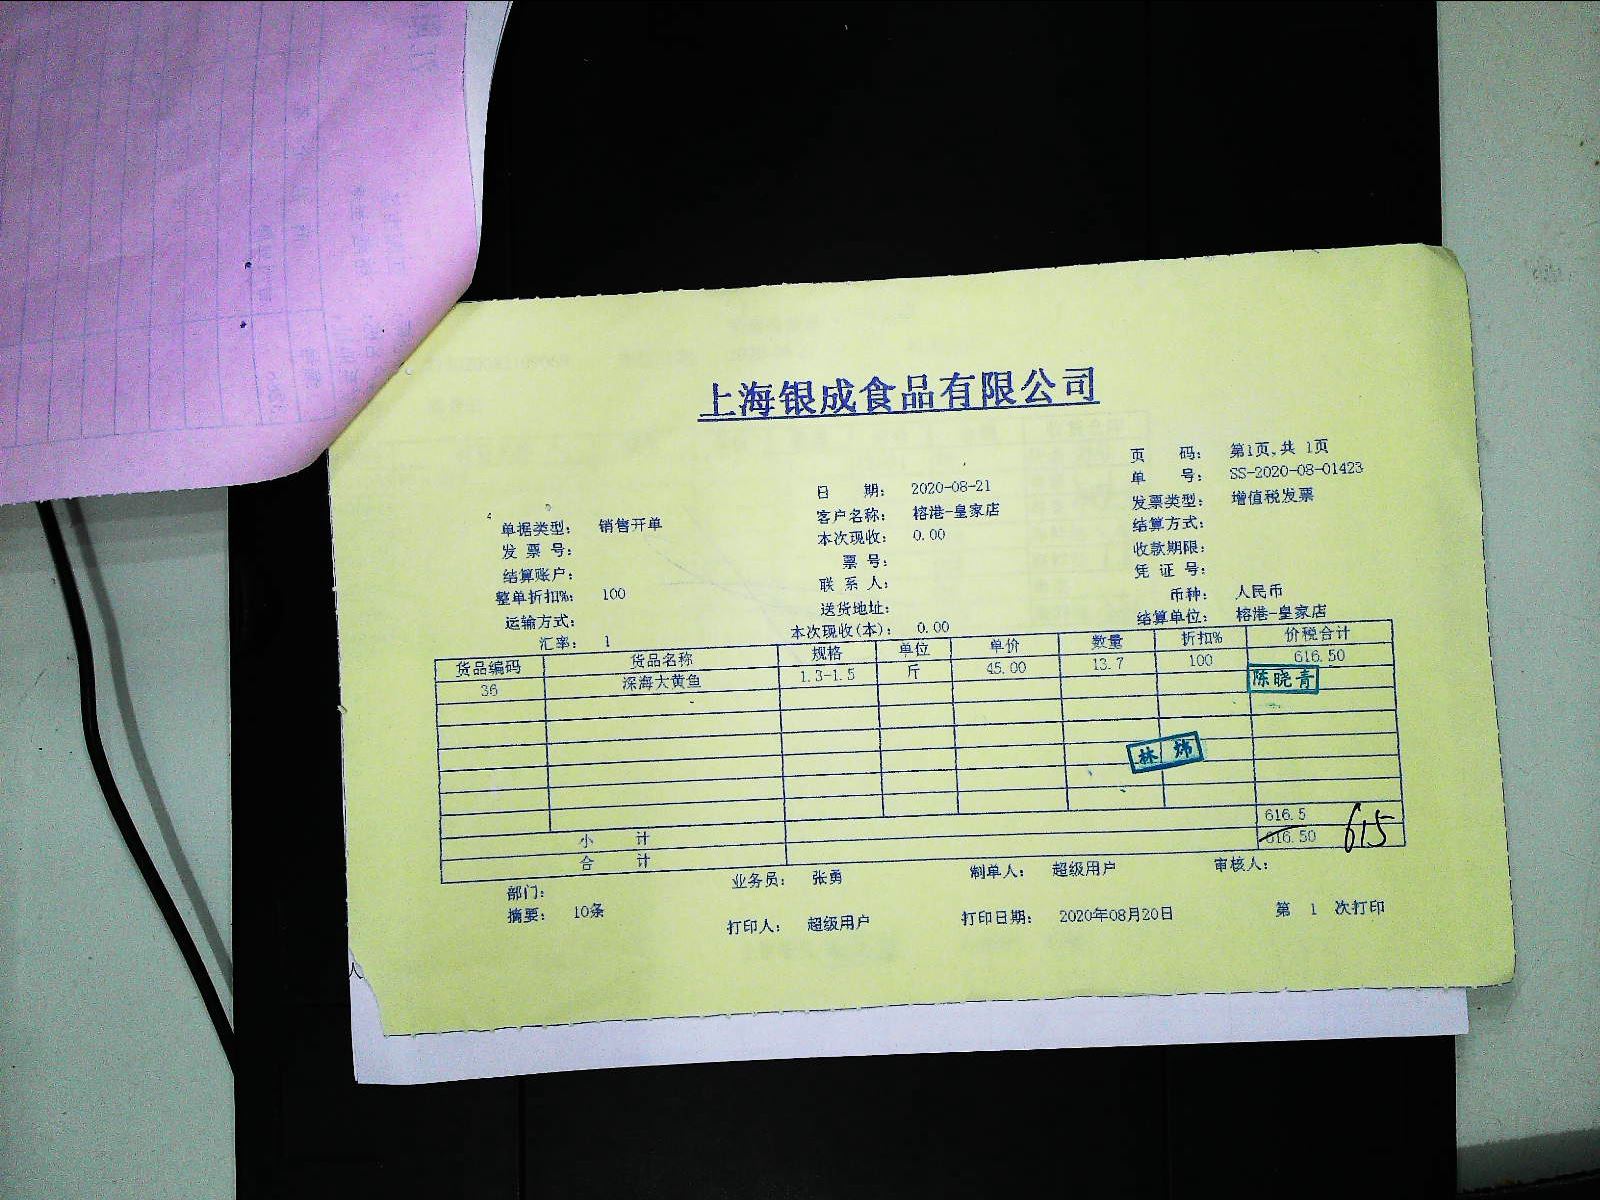 上海银成食品有限公司
页 码： 第1页,共 1页
单 号： SS-2020-08-01423
日 期： 2020-08-21
发票类型： 增值税发票
单据类型： 销售开单
客户名称： 榕港-皇家店
结算方式：
发 票 号：
本次现收： 0.00
收款期限：
结算账户：
票 号：
凭 证 号：
整单折扣%： 100
联 系 人：
币种： 人民币
运输方式：
送货地址：
结算单位： 榕港-皇家店
汇率： 1
本次现收(本)： 0.00
货品编码 货品名称 规格 单位 单价 数量 折扣% 价税合计
36 深海大黄鱼 1.3-1.5 斤 45.00 13.7 100 616.50
陈晓青
林炜
小 计 616.5
合 计 616.50 615
部门： 业务员： 张勇 制单人： 超级用户 审核人：
摘要： 10条 打印人： 超级用户 打印日期： 2020年08月20日 第 1 次打印